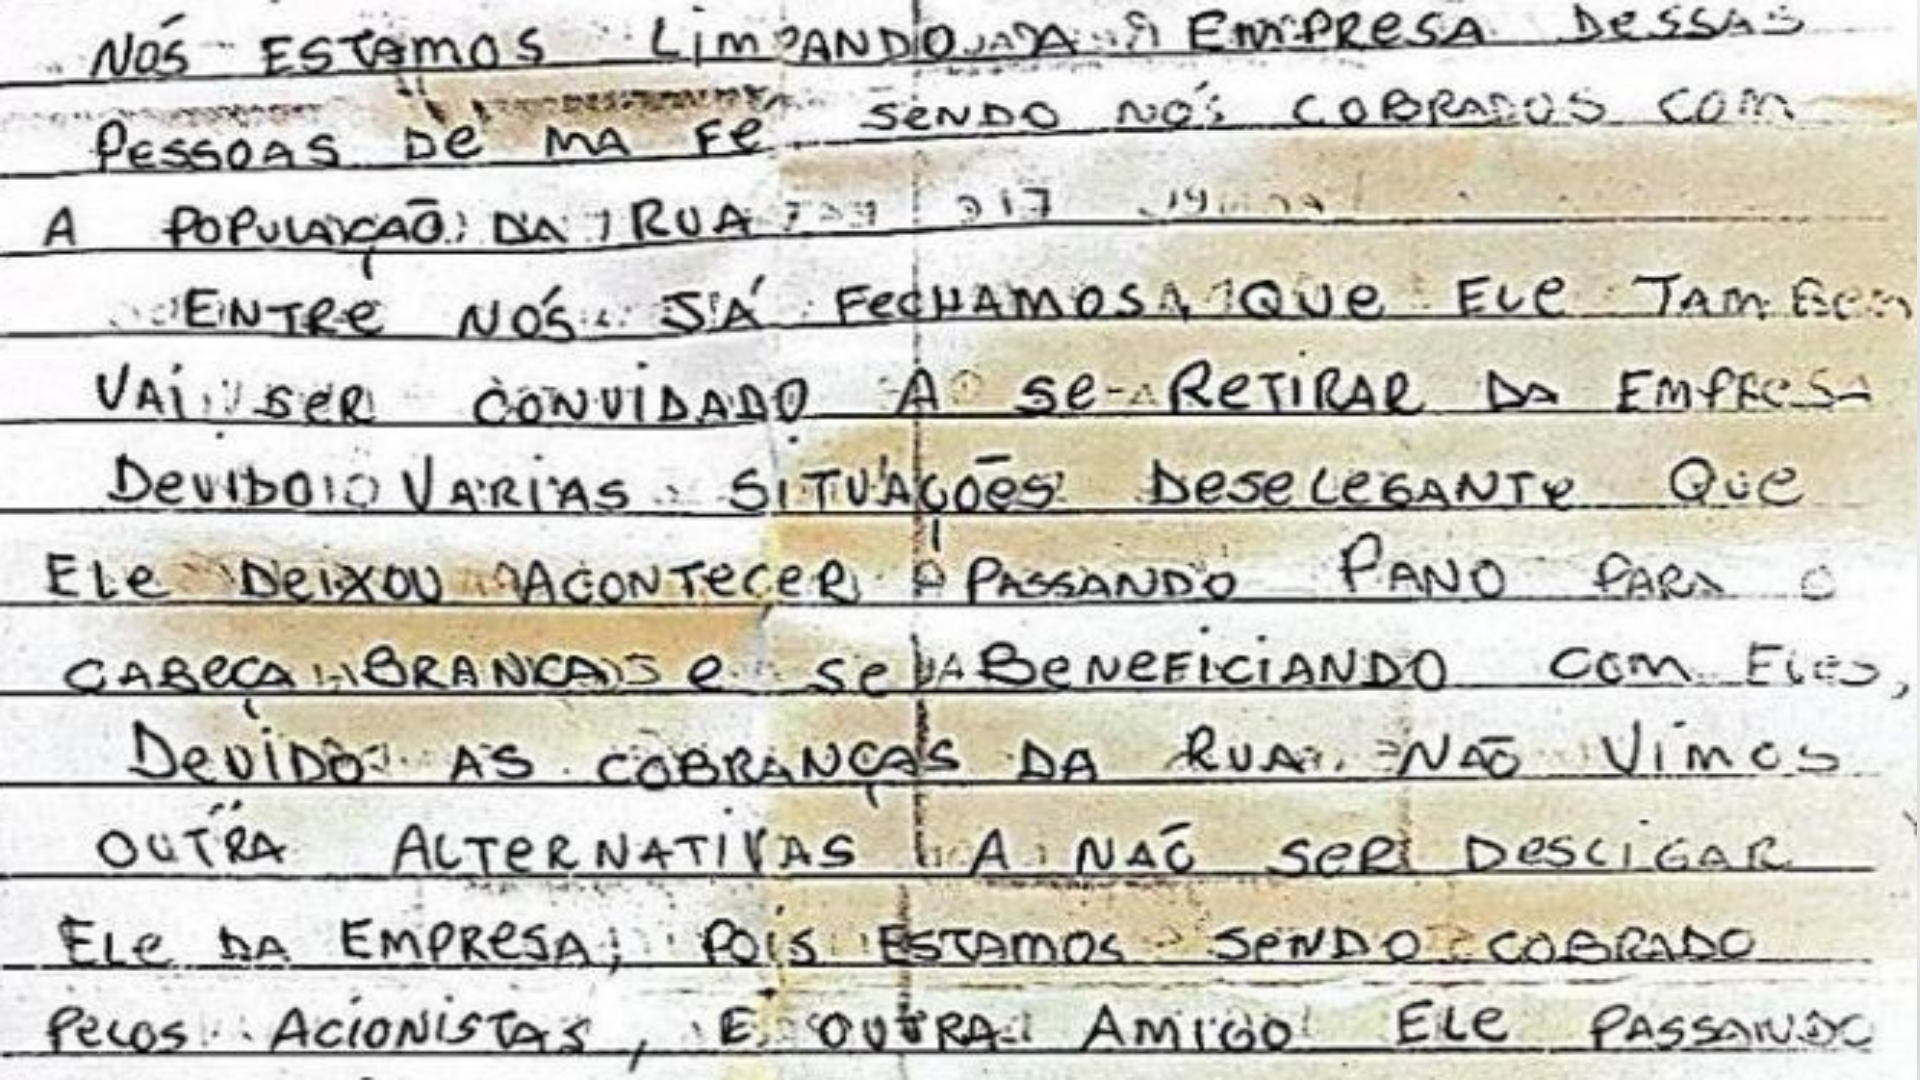 NÓS ESTAMOS LIMPANDO A EMPRESA DESSAS
PESSOAS DE MA FE SENDO NÓS COBRADOS COM
A POPULAÇÃO DA RUA
ENTRE NÓS JÁ FECHAMOS QUE ELE TAMBEM
VAI SER CONVIDADO A SE RETIRAR DA EMPRESA
DEVIDO VARIAS SITUAÇÕES DESELEGANTE QUE
ELE DEIXOU ACONTECER PASSANDO PANO PARA O
CABEÇA BRANCA E SE BENEFICIANDO COM ELES,
DEVIDO AS COBRANÇAS DA RUA NÃO VIMOS
OUTRA ALTERNATIVAS A NÃO SER DESLIGAR
ELE DA EMPRESA, POIS ESTAMOS SENDO COBRADO
PELOS ACIONISTAS, E OUTRA AMIGO ELE PASSANDO